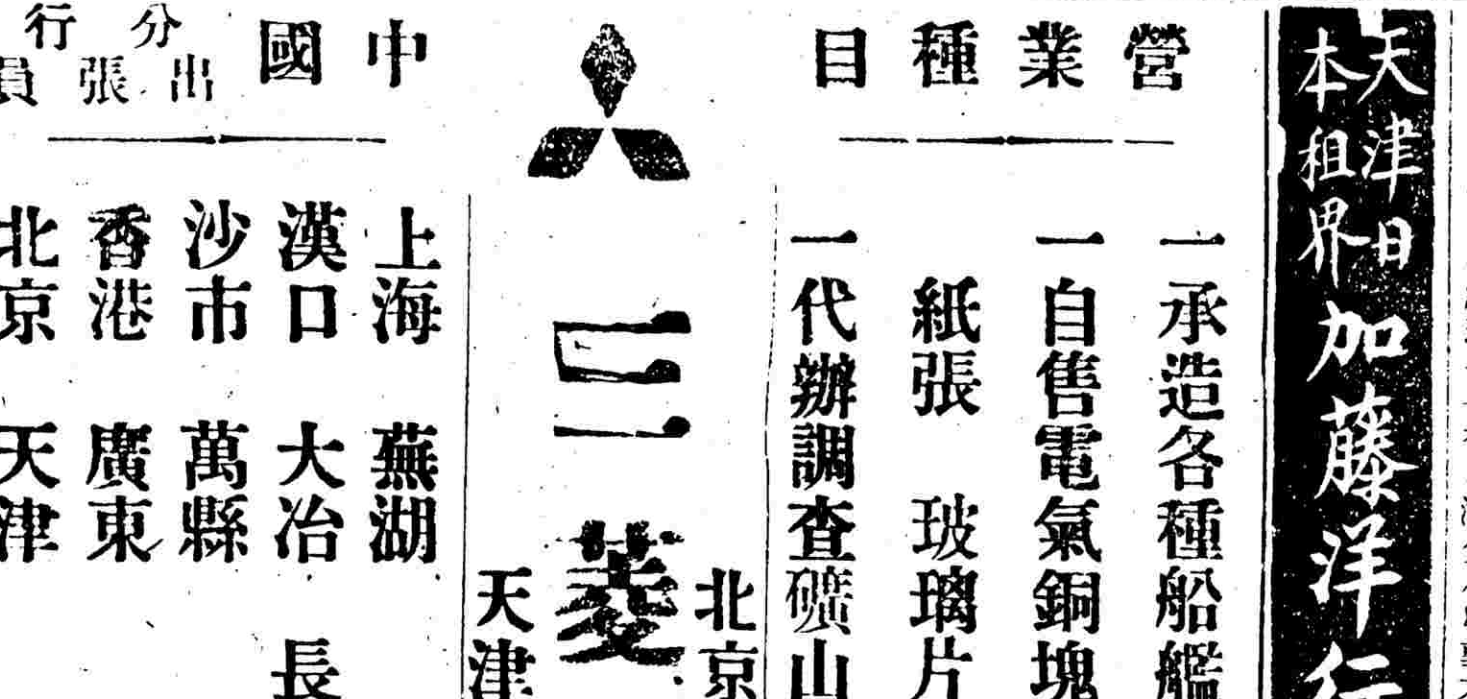 天津日
本租界
加藤洋行
營業種目
一承造各種船艦
一自售電氣銅塊
紙張 玻璃片
一代辦調查礦山
北京
三菱
天津
中國
分行
出張員
上海 蕪湖
漢口 大冶 長
沙市 萬縣
香港 廣東
北京 天津